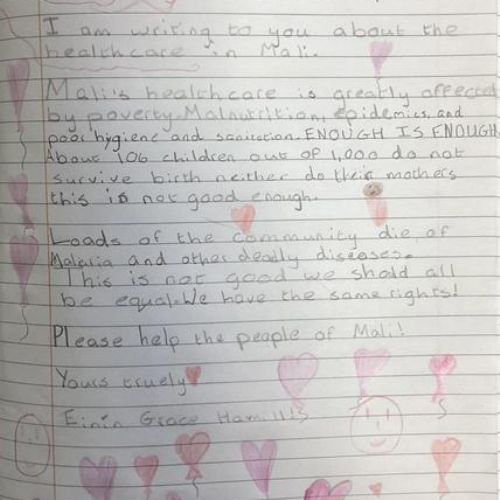 I am writing to you about the
healthcare in Mali.
Mali's healthcare is greatly affected
by poverty. Malnutrition, epidemics, and
poor hygiene and sanitation. ENOUGH IS ENOUGH
About 106 children out of 1,000 do not
survive birth neither do their mothers
this is not good enough.
Loads of the community die of
Malaria and other deadly diseases.
This is not good we should all
be equal. We have the same rights!
Please help the people of Mali!
Yours truely
Grace